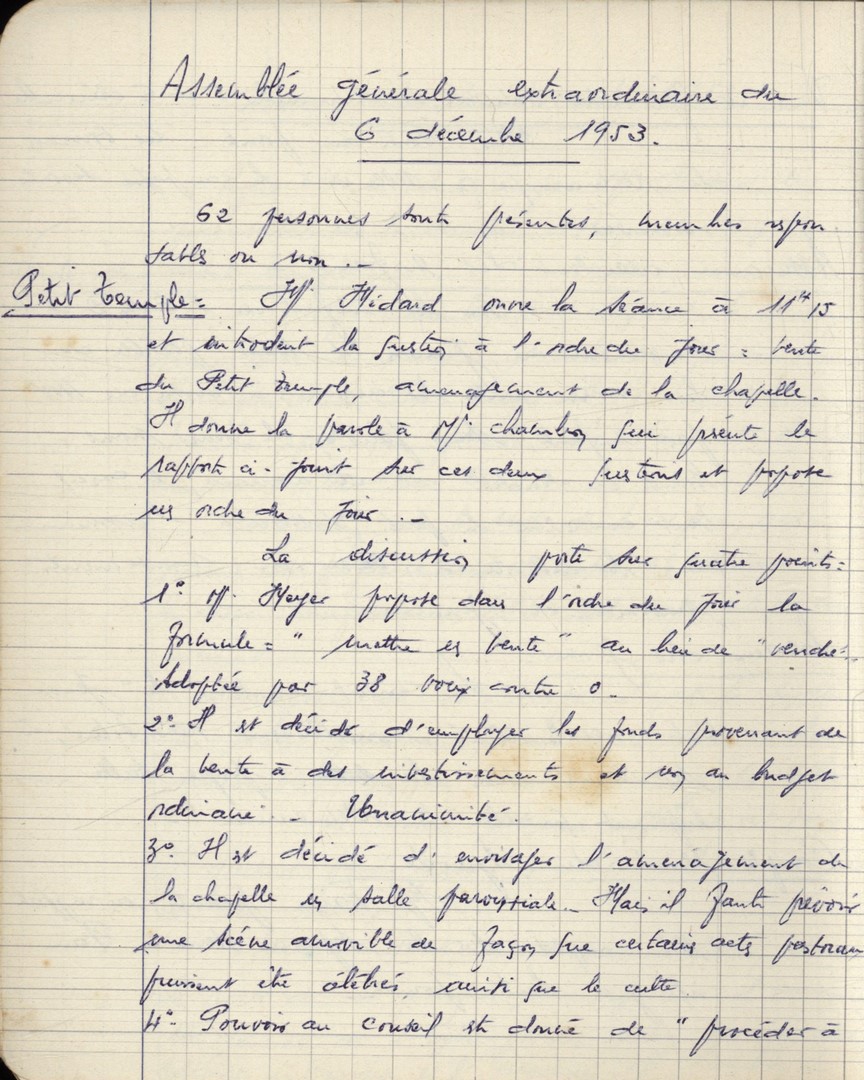 Assemblée générale extraordinaire du
6 décembre 1953.
62 personnes sont présentes, membres respon
sables ou non._
Petit temple = Mr Médard ouvre la séance à 11H 15
et introduit la question à l'ordre du jour : vente
du Petit temple, aménagement de la chapelle.
Il donne la parole à Mr. Chambon qui présente le
rapport ci-joint sur ces deux questions et propose
un ordre du jour._
La discussion porte sur quatre points:
1° Mr. Meyer propose dans l'ordre du jour la
formule = " mettre en vente " au lieu de " vendre".
Adoptée par 38 voix contre 0.
2° Il est décidé d'employer les fonds provenant de
la vente à des investissements et non au budget
ordinaire. _ Unanimité.
3° Il est décidé d'envisager l'aménagement de
la chapelle en salle paroissiale_ Mais il faut prévoir
une scène amovible de façon que certains acts pastoraux
puissent être célébrés, ainsi que le culte.
4° Pouvoir au conseil est donné de " procéder à